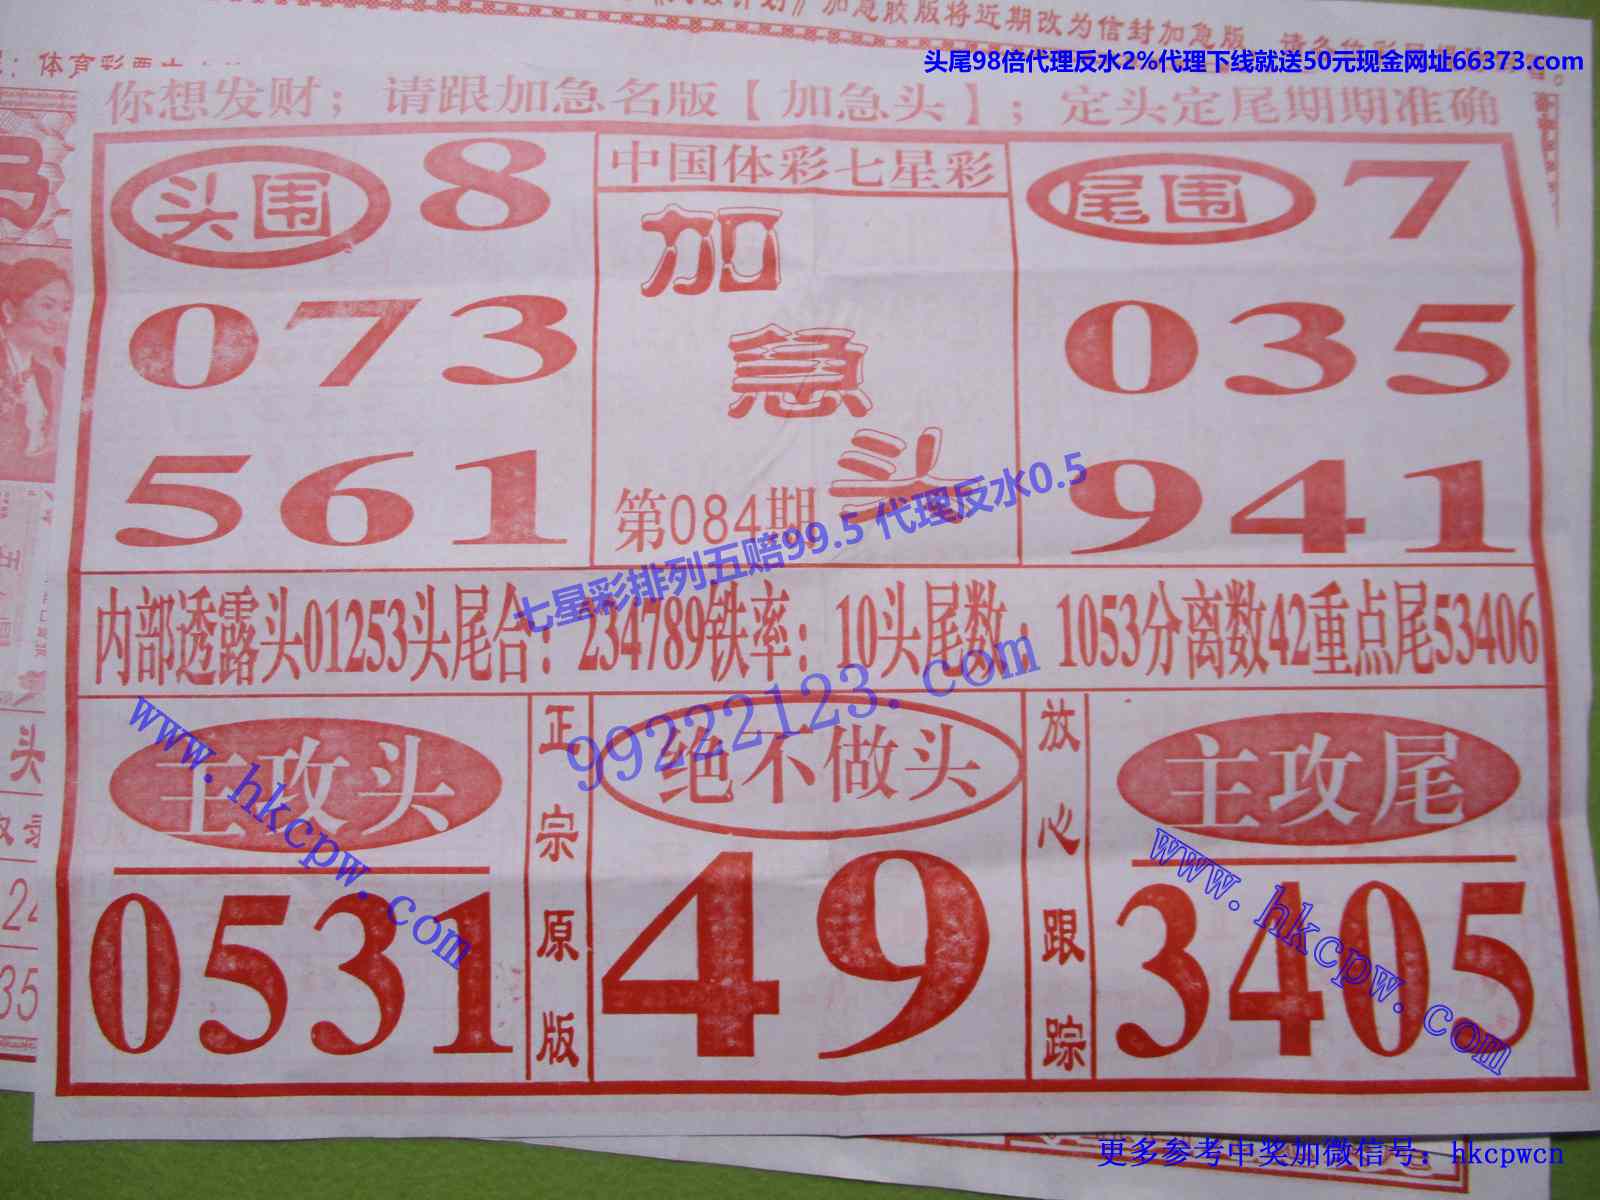 加急胶版将近期改为信封加急版
头尾98倍代理反水2%代理下线就送50元现金网址66373.com
体育彩票
你想发财；请跟加急名版【加急头】；定头定尾期期准确
头围 8
073
561
中国体彩七星彩
加
急
头
第084期
尾围 7
035
941
七星彩排列五赔99.5 代理反水0.5
内部透露头01253头尾合：234789铁率：10头尾数：1053分离数42重点尾53406
99222123.com
www.hkcpw.com
主攻头
0531
正宗原版
绝不做头
49
放心跟踪
主攻尾
3405
www.hkcpw.com
24
35
更多参考中奖加微信号：hkcpwcn